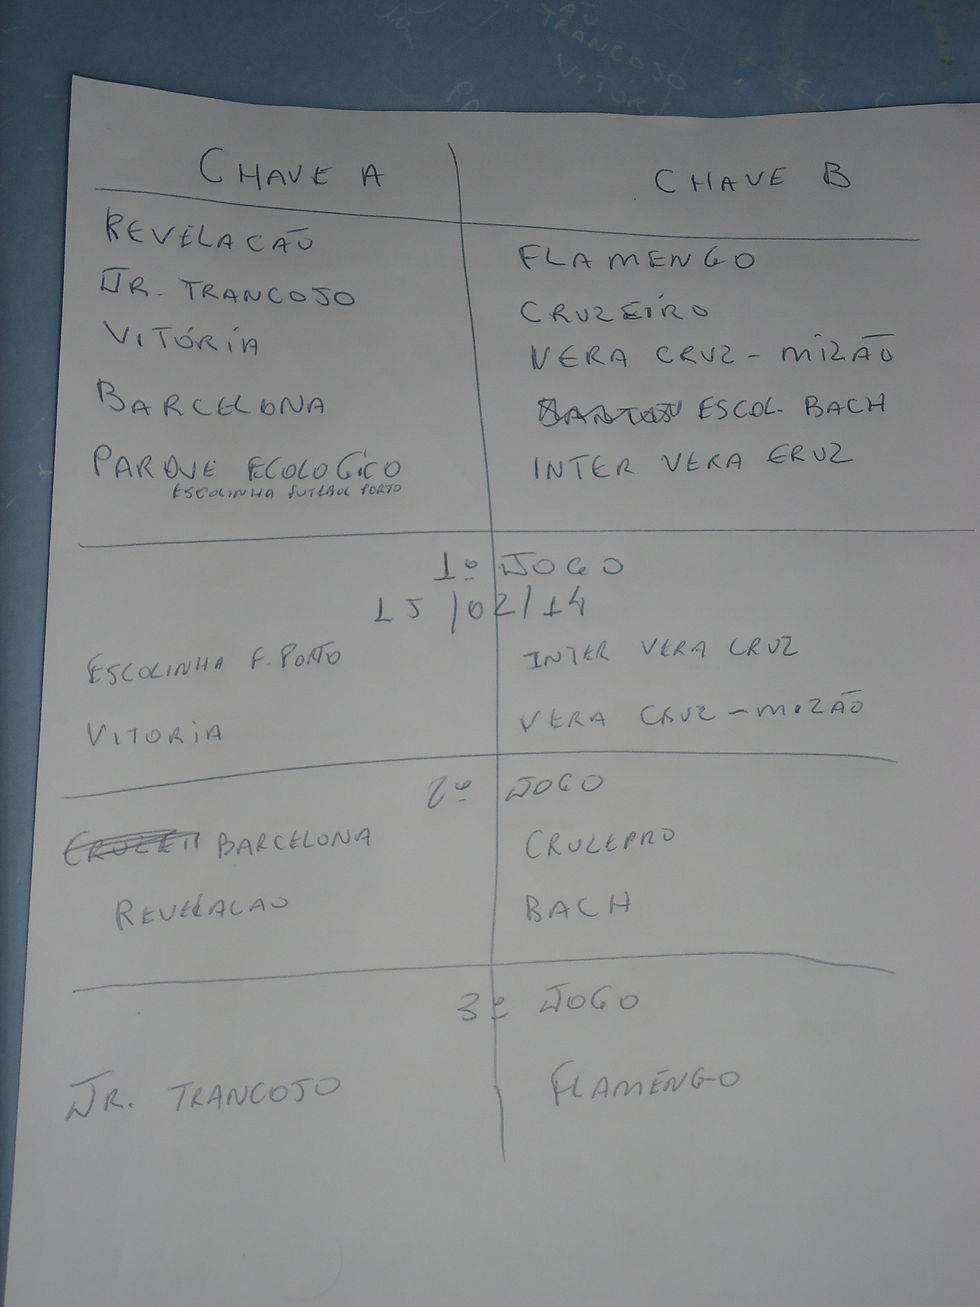 CHAVE A CHAVE B
REVELACÃO FLAMENGO
JR. TRANCOJO CRUZEIRO
VITÓRIA VERA CRUZ - MIZÃO
BARCELONA ESCOL. BACH
PARQUE ECOLOGICO INTER VERA CRUZ
ESCOLINHA FUTEBOL PORTO
1º JOGO
15/02/14
ESCOLINHA F. PORTO INTER VERA CRUZ
VITORIA VERA CRUZ - MIZÃO
2º JOGO
BARCELONA CRUZEIRO
REVELACAO BACH
3º JOGO
JR. TRANCOJO FLAMENGO